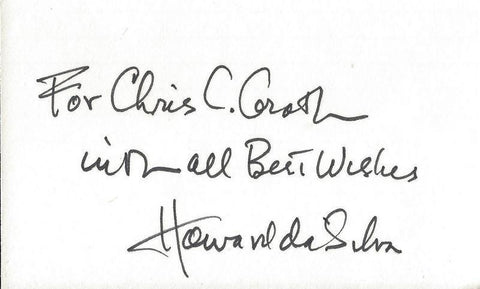 For Chris C. Groth
with all Best Wishes
Howard da Silva